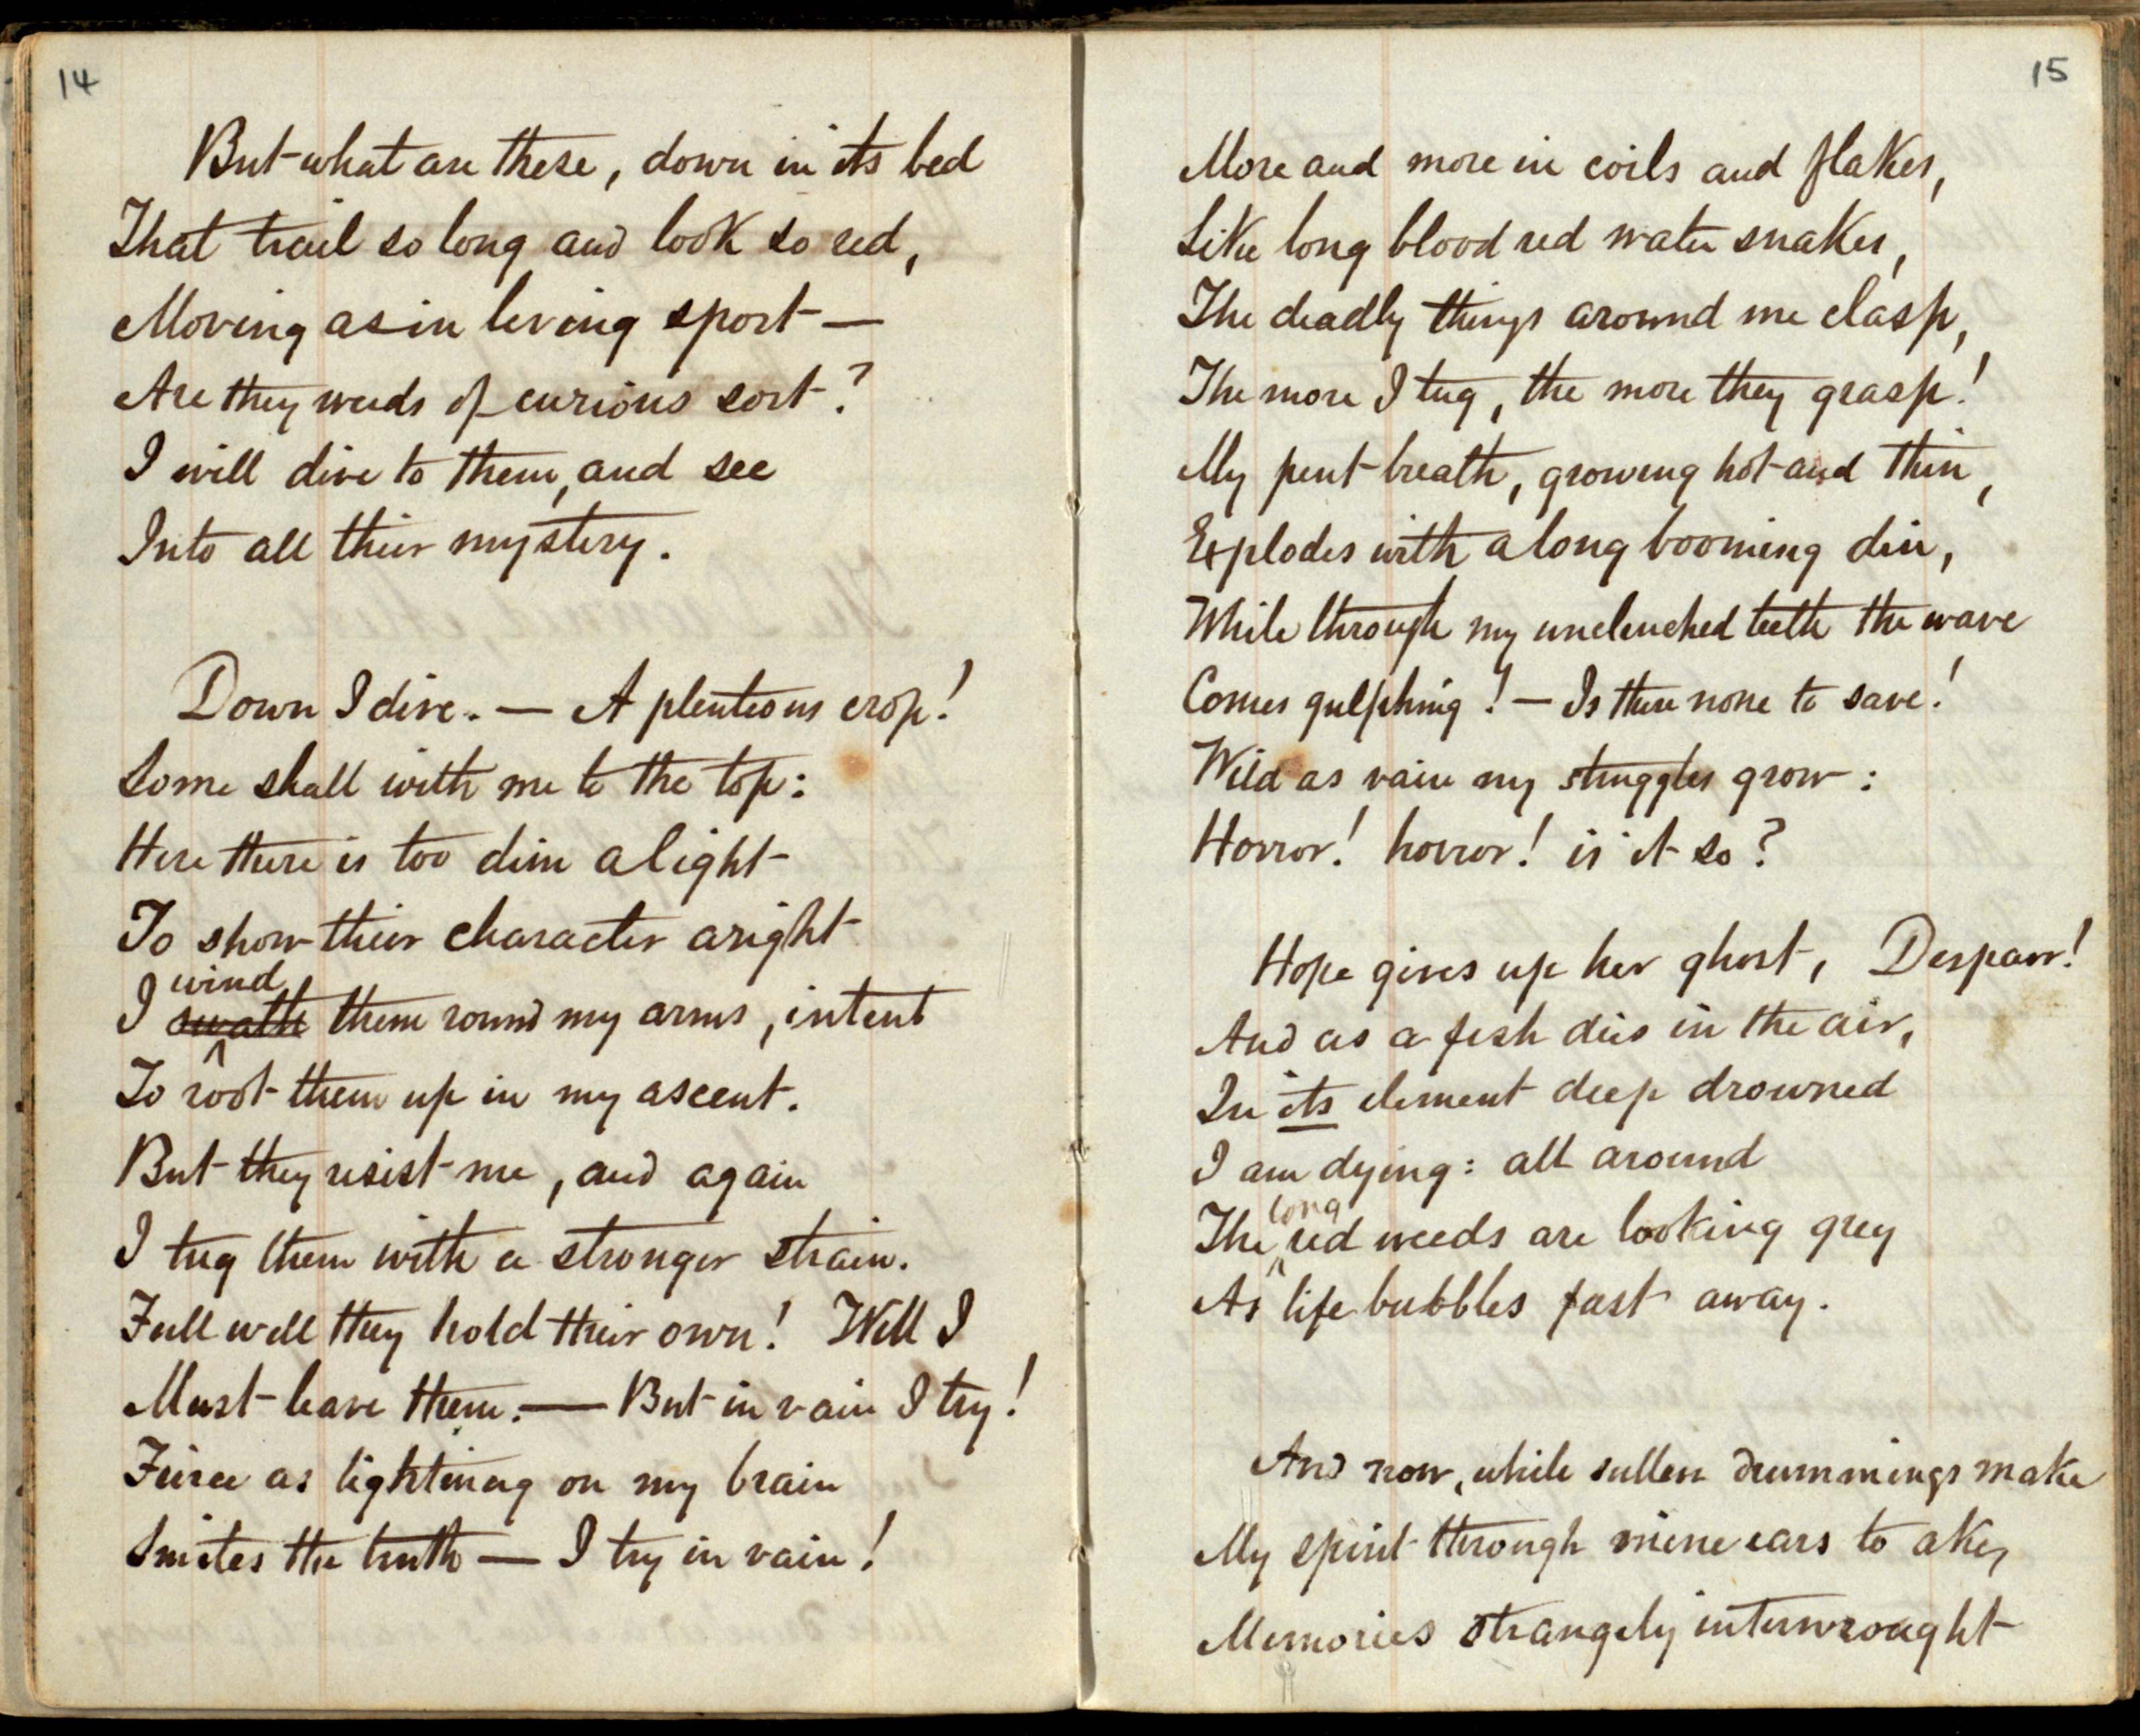 14
But what are these, down in its bed
That trail so long and look so red,
Moving as in living sport —
Are they weeds of curious sort?
I will dive to them, and see
Into all their mystery.
Down I dive. — A plenteous crop!
Some shall with me to the top:
Here there is too dim a light
To show their character aright
wind
I swathe them round my arms, intent
To root them up in my ascent.
But they resist me, and again
I tug them with a stronger strain.
Full well they hold their own! Well I
Must leave them. — But in vain I try!
Fierce as lightning on my brain
Smites the truth — I try in vain!
15
More and more in coils and flakes,
Like long blood red water snakes,
The deadly things around me clasp,
The more I tug, the more they grasp!
My pent breath, growing hot and thin,
Explodes with a long booming din,
While through my unclenched teeth the wave
Comes gulphing! — Is there none to save!
Wild as vain my struggles grow:
Horror! horror! is it so?
Hope gives up her ghost, Despair!
And as a fish dies in the air,
In its element deep drowned
I am dying: all around
long
The red weeds are looking grey
As life bubbles fast away.
And now, while sullen drummings make
My spirit through mine ears to ake,
Memories strangely interwrought